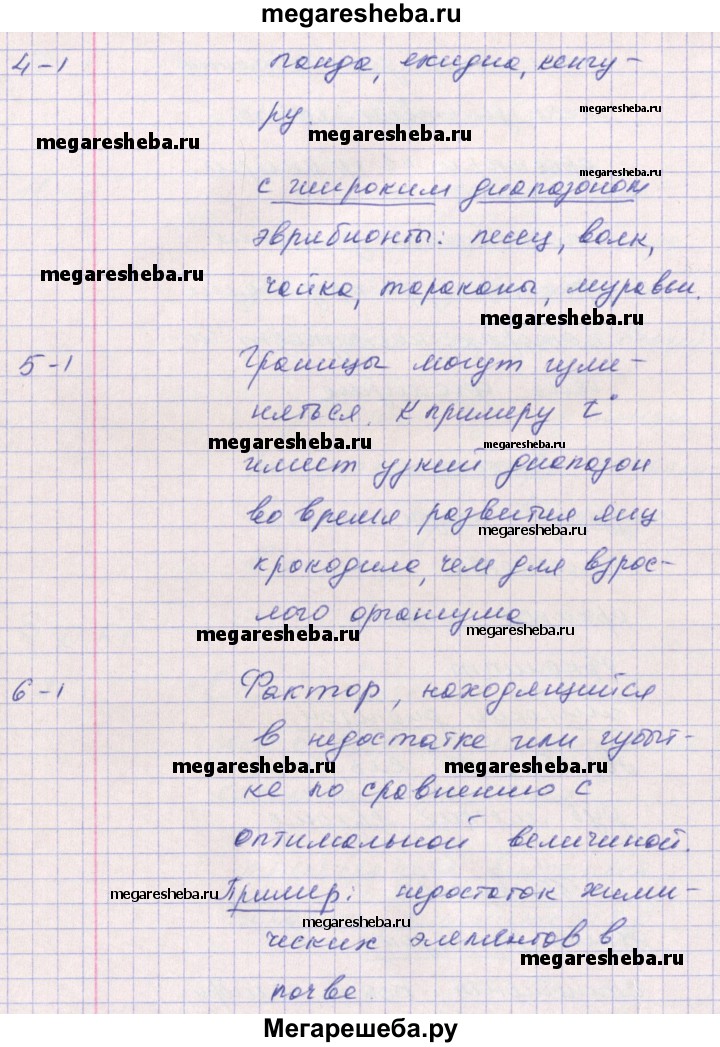 megaresheba.ru
4-1 панда, ехидна, кенгу-
megaresheba.ru
ру.
megaresheba.ru
megaresheba.ru
с широким диапазоном
эврибионты: песец, волк,
megaresheba.ru
чайка, тараканы, муравьи.
megaresheba.ru
5-1 Границы могут изме-
няться. К примеру t°
megaresheba.ru megaresheba.ru
имеет узкий диапазон
во время развития яиц
megaresheba.ru
крокодила, чем для взрос-
лого организма
megaresheba.ru megaresheba.ru
6-1 Фактор, находящийся
в недостатке или избыт-
megaresheba.ru megaresheba.ru
ке по сравнению с
оптимальной величиной.
megaresheba.ru Пример: недостаток хими-
megaresheba.ru
ческих элементов в
megaresheba.ru
почве.
Мегарешеба.ру